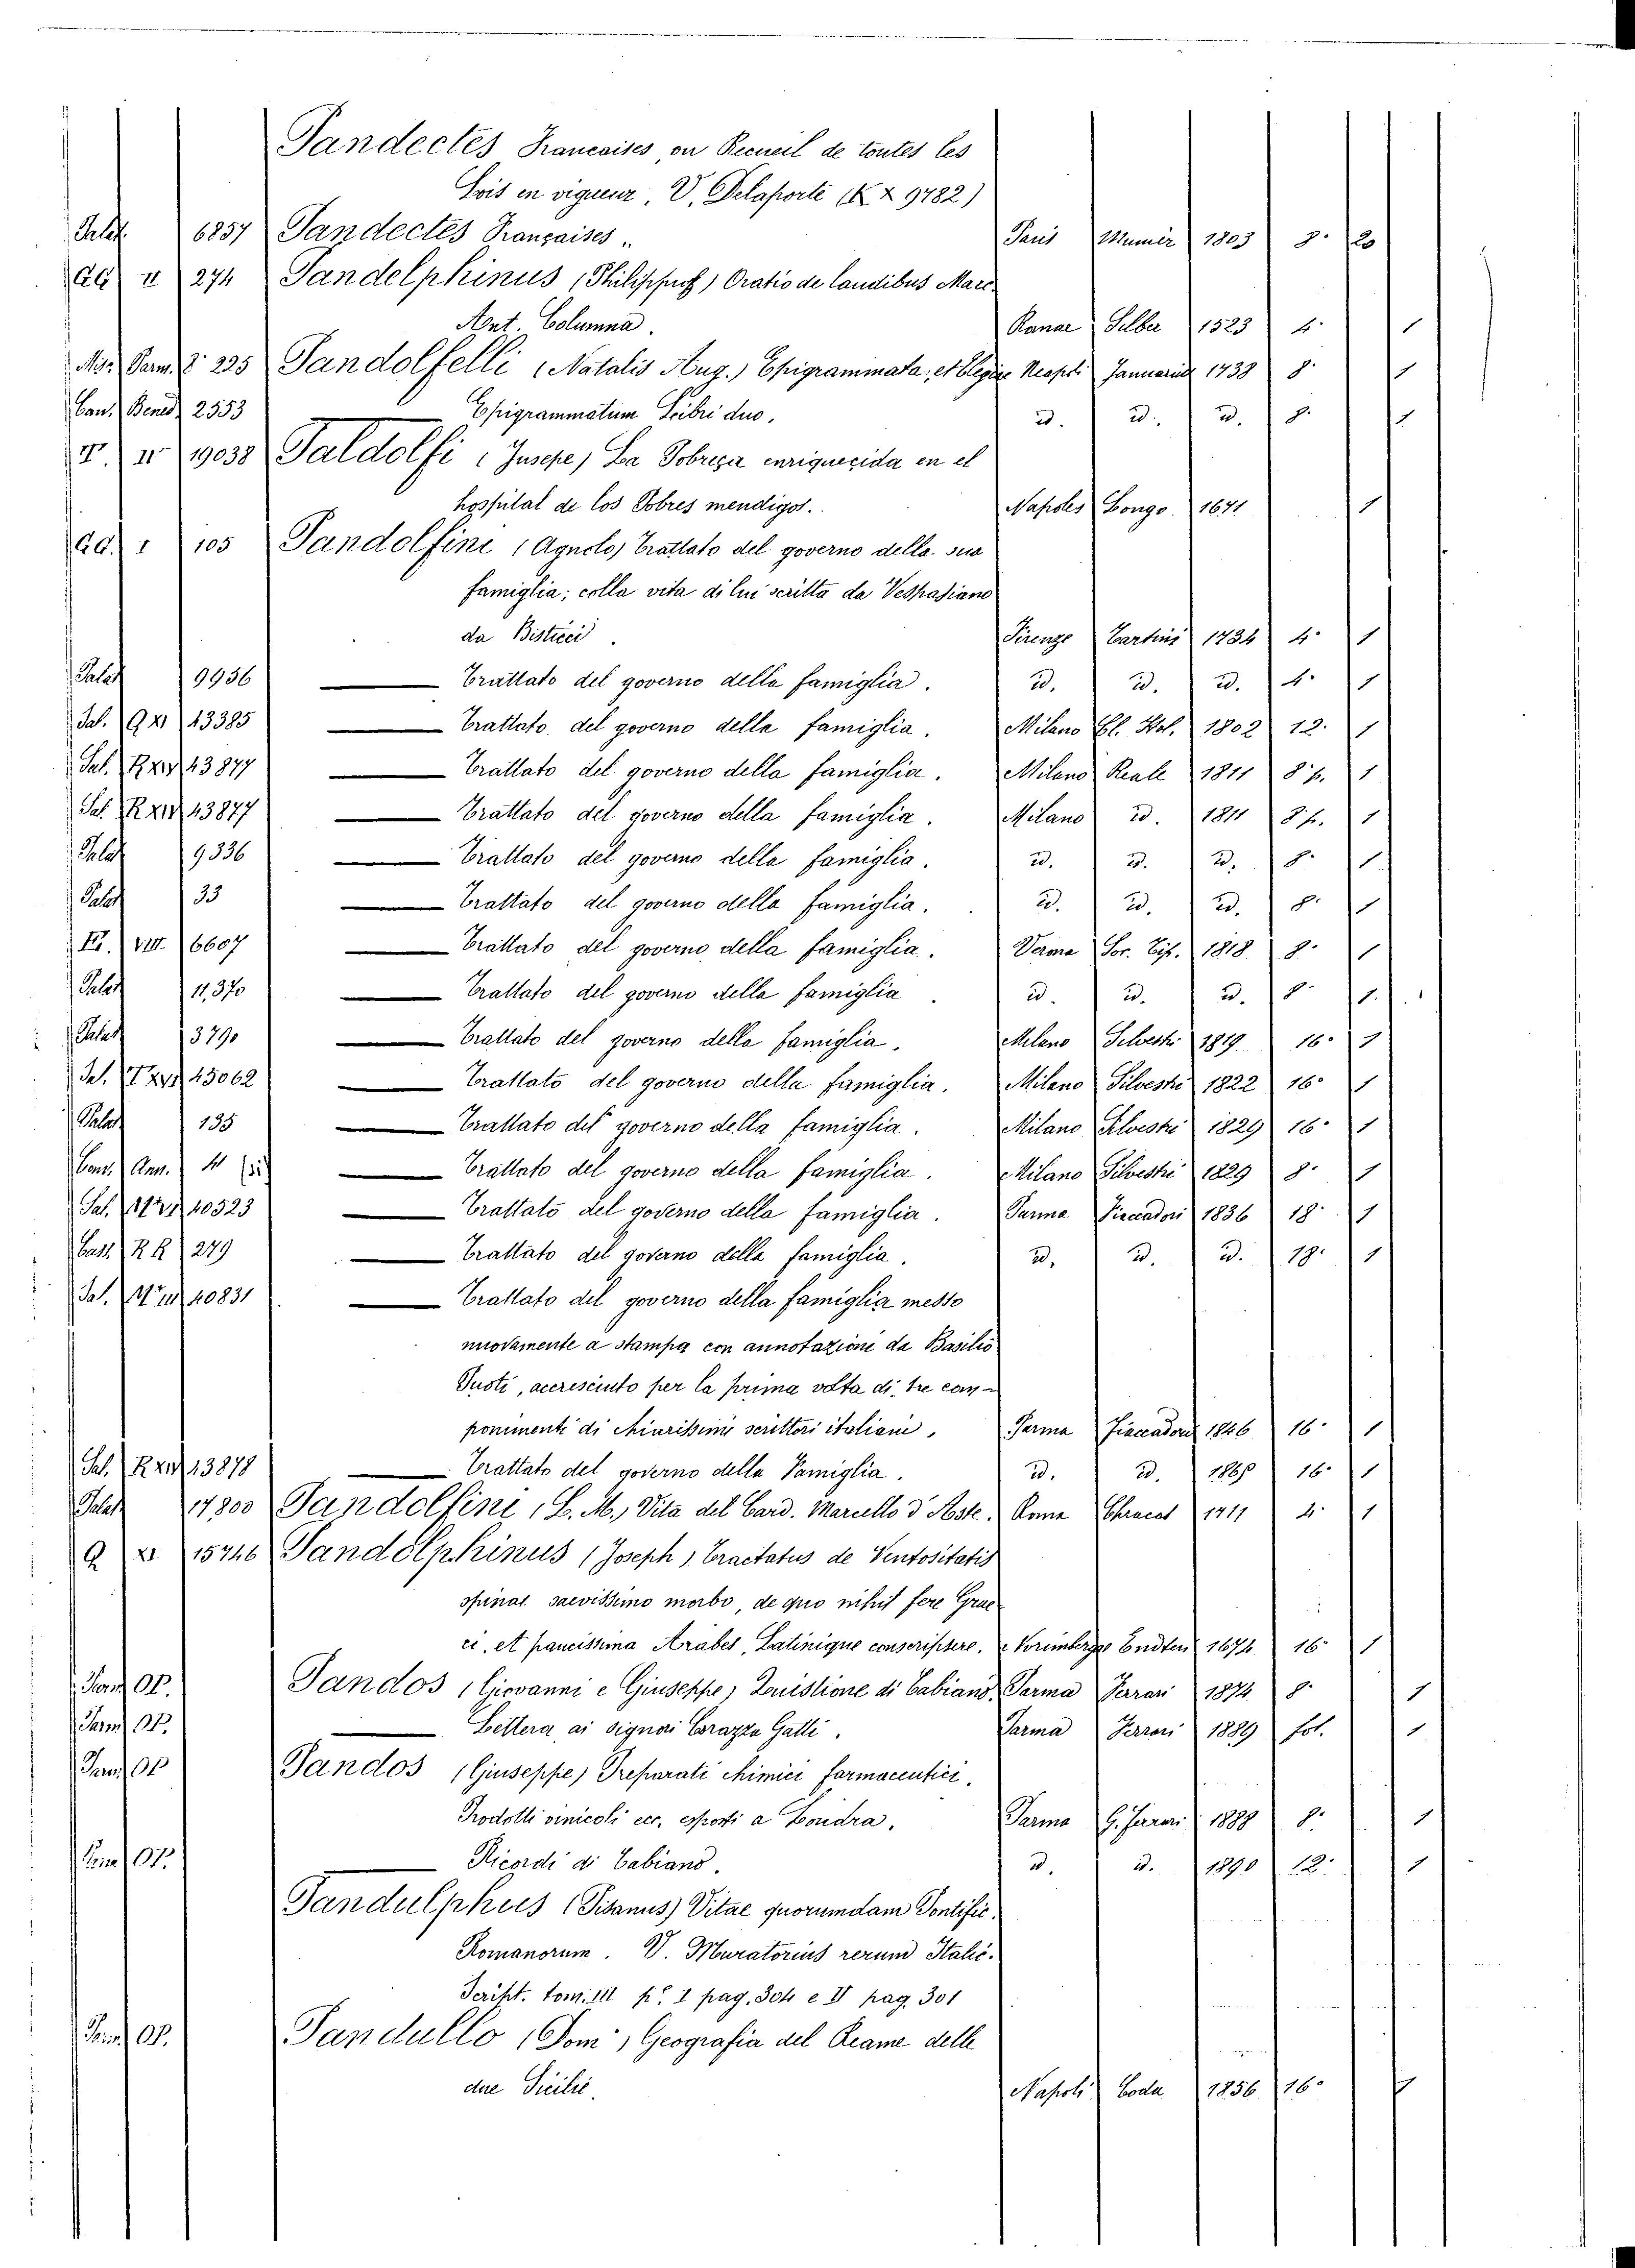 Pandectes Francaises, ou Recueil de toutes les
Lois en vigueur, V. Delaporte (K X 9782)
Palat. 6857 Pandectes Françaises „ Paris Mumer 1803 8.° 20
QQ II 274 Pandelphinus (Philippus) Oratio de laudibus Marc.
Ant. Columna. Romae Silber 1523 4.° 1
Mis. Parm. 8.° 225 Pandolfelli (Natalis Aug.) Epigrammata, et Elegiae Neapoli Januarius 1738 8.° 1
Cant. Bened. 2553 Epigrammatum Libri duo. id. id. id. 8.° 1
V. V 19038 Paldolfi (Jusepe) La Pobreza enriquezida en el
hospital de los Pobres mendigos. Napoles Longo 1671 1
QQ. I 105 Pandolfini (Agnolo) Trattato del governo della sua
famiglia; colla vita di lui scritta da Vespasiano
da Bisticci. Firenze Tartini 1734 4.° 1
Palat 9956 —— Trattato del governo della famiglia. id. id. id. 4.° 1
Sal. Q XI 13385 —— Trattato del governo della famiglia. Milano Cl. Ital. 1802 12.° 1
Sal. R XIV 13877 —— Trattato del governo della famiglia. Milano Reale 1811 8.° p. 1
Sal. R XIV 13877 —— Trattato del governo della famiglia. Milano id. 1811 8 p. 1
Palat 9336 —— Trattato del governo della famiglia. id. id. id. 8.° 1
Palat 33 —— Trattato del governo della famiglia. id. id. id. 8.° 1
VIII. 6607 —— Trattato del governo della famiglia. Verona Soc. Tip. 1818 8.° 1
Palat 11,370 —— Trattato del governo della famiglia. id. id. id. 8.° 1.
Palat 3790 —— Trattato del governo della famiglia. Milano Silvestri 1819. 16.° 1
Sal. T XVI 15062 —— Trattato del governo della famiglia. Milano Silvestri 1822 16.° 1
Palat 135 —— Trattato del governo della famiglia. Milano Silvestri 1829 16.° 1
Cant. Ann. 4 —— Trattato del governo della famiglia. Milano Silvestri 1829 8.° 1
Sal. 10523 —— Trattato del governo della famiglia. Parma Fiaccadori 1836 18.° 1
Cast. R R 279 —— Trattato del governo della famiglia. id. id. id. 18.° 1
Sal. 10831 —— Trattato del governo della famiglia messo
nuovamente a stampa con annotazioni da Basilio
Puoti, accresciuto per la prima volta di tre com-
ponimenti di chiarissimi scrittori italiani. Parma Fiaccadori 1846 16.° 1
Sal. R XIV 13878 —— Trattato del governo della Famiglia. id. id. 1865 16.° 1
Palat 17800 Pandolfini (L. M.) Vita del Card. Marcello d'Aste. Roma Chracas 1711 4.° 1
Q XI 15746 Pandolphinus (Joseph) Tractatus de Ventositatis
spinae saevissimo morbo, de quo nihil fere Grae-
ci, et paucissima Arabes, Latinique conscripsere. Norimbergae Endten 1674 16.° 1
Parm OP. Pandos (Giovanni e Giuseppe) Quistione di Tabiano Parma Ferrari 1874 8.° 1
Parm OP. —— Lettera ai signori Corazza Gatti. Parma Ferrari 1889 fol. 1
Parm OP Pandos (Giuseppe) Preparati chimici farmaceutici.
Prodotti vinicoli ecc. esposti a Londra. Parma G. Ferrari 1888 8.° 1
Parm OP. —— Ricordi di Tabiano. id. id. 1890 12.° 1
Pandulphus (Pisanus) Vitae quorumdam Pontific.
Romanorum. V. Muratorius rerum Italic.
Script. tom. III p.° I pag. 304 e II pag. 301
Parm OP. Pandullo (Dom.°) Geografia del Reame delle
due Sicilie. Napoli Coda 1856 16.° 1